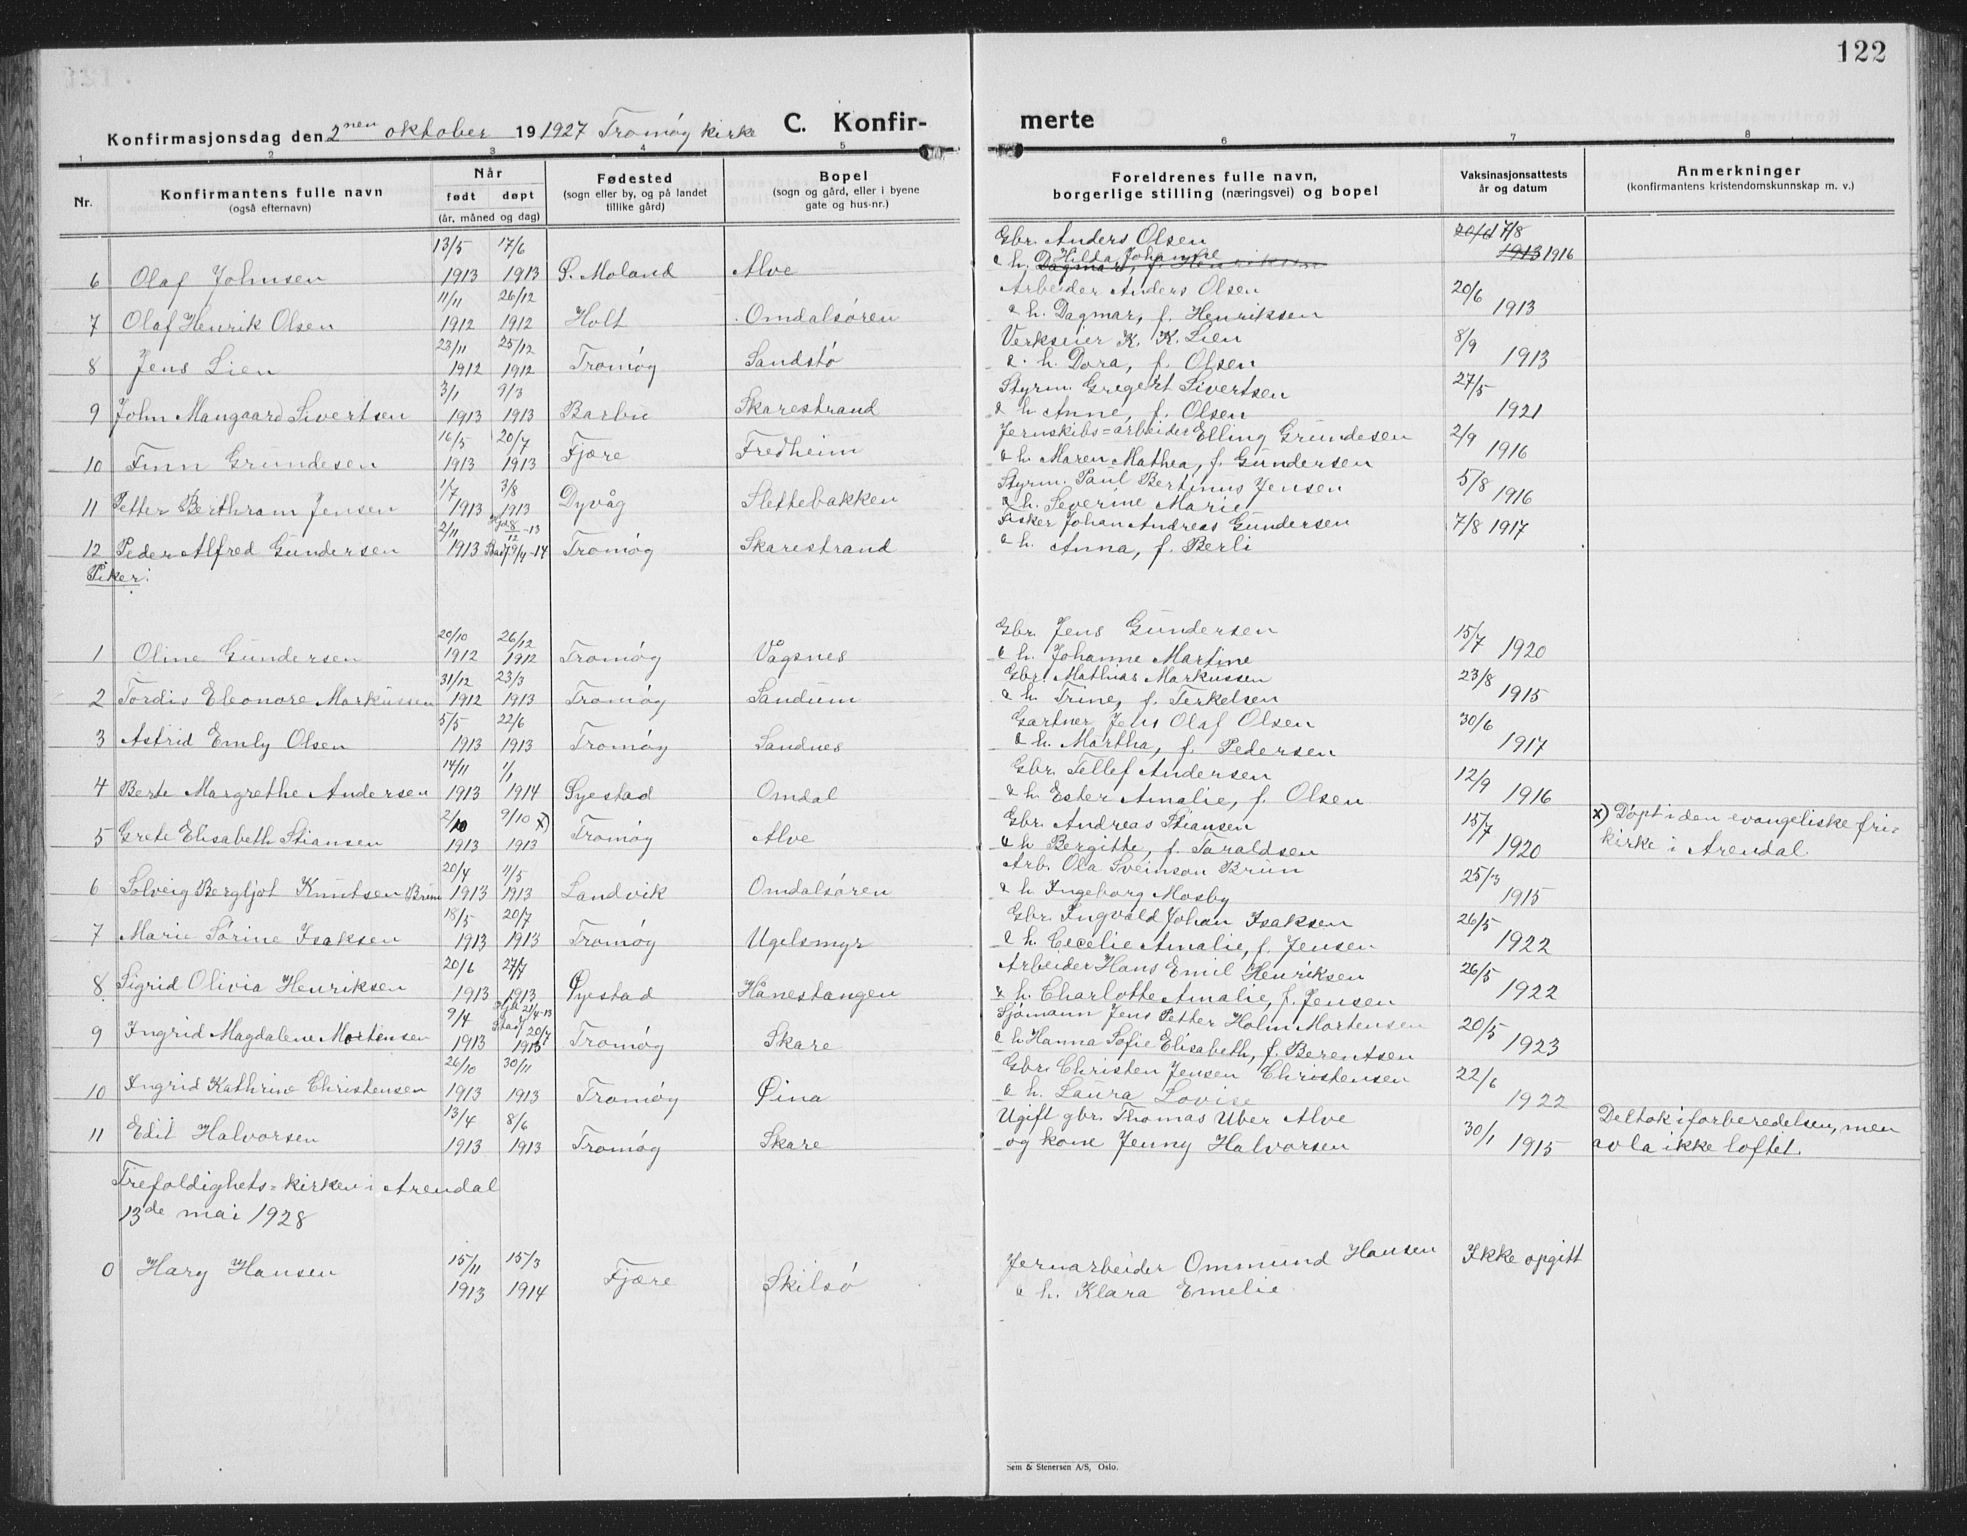 122
Konfirmasjonsdag den 2nen oktober 19 1927 Tromøy kirke C. Konfir- merte
1 2 3 4 5 6 7 8
Nr. Konfirmantens fulle navn (også efternavn) Når født døpt (år, måned og dag) Fødested (sogn eller by, og på landet tillike gård) Bopel (sogn og gård, eller i byene gate og hus-nr.) Foreldrenes fulle navn, borgerlige stilling (næringsvei) og bopel Vaksinasjonsattests år og datum Anmerkninger (konfirmantens kristendomskunnskap m. v.)
13/5 17/6 Gbr. Anders Olsen 20/6 7/8
6 Olaf Johnsen 1913 1913 Ö. Moland Alve & h. Dagmar, f. Henriksen Hilda Johanne 1913 1916
11/11 26/12 Arbeider Anders Olsen 20/6
7 Olaf Henrik Olsen 1912 1912 Holt Omdalsøren & h. Dagmar, f. Henriksen 1913
23/11 25/12 Verkseier K. K. Lien 8/9
8 Jens Lien 1912 1912 Tromøy Sandstø & h. Dora, f. Olsen 1913
3/1 9/3 Styrm. Gregert Sivertsen 27/5
9 John Mangaard Sivertsen 1913 1913 Barbu Skarestrand & h. Anne, f. Olsen 1921
16/5 20/7 Jernskibs=arbeider Elling Grundesen 2/9
10 Finn Grundesen 1913 1913 Fjære Fredheim & h. Maren Mathea, f. Gundersen 1916
1/7 3/8 Styrm. Paul Bertinus Jensen 5/8
11 Petter Berthram Jensen 1913 1913 Dyvåg Slettebakken & h. Severine Marie 1916
2/11 Hjd 8/12-13 Fisker Johan Andreas Gundersen 7/8 1917
12 Peder Alfred Gundersen 1913 Stadf 19/4-14 Tromøy Skarestrand & h. Anna, f. Berli
Piker:
20/10 26/12 Gbr. Jens Gundersen 15/7
1 Oline Gundersen 1912 1912 Tromøy Vågsnes & h. Johanne Martine 1920
31/12 23/3 Gbr. Mathias Markussen 23/8
2 Tordis Eleonore Markussen 1912 1913 Tromøy Sandum & h. Trine, f. Terkelsen 1915
5/5 22/6 Gartner Jens Olaf Olsen 30/6
3 Astrid Emly Olsen 1913 1913 Tromøy Sandnes & h. Martha, f. Pedersen 1917
14/11 1/1 Gbr. Tellef Andersen 12/9
4 Berte Margrethe Andersen 1913 1914 Øyestad Omdal & h. Ester Amalie, f. Olsen 1916
2/10 9/10 x) Gbr. Andreas Stiansen 15/7 x) Døpt i den evangeliske fri-
5 Grete Elisabeth Stiansen 1913 1913 Tromøy Alve & h Bergitte, f. Taraldsen 1920 kirke i Arendal.
20/4 4/5 Arb. Ola Sveinson Brun 25/3
6 Solveig Bergljot Knutsen Brun 1913 1913 Landvik Omdalsøren & h Ingeborg Mosby 1915
18/5 20/7 Gbr. Ingvald Johan Isaksen 26/5
7 Marie Sørine Isaksen 1913 1913 Tromøy Ugelsmyr & h. Cecelie Amalie, f. Jensen 1922
20/6 27/7 Arbeider Hans Emil Henriksen 26/5
8 Sigrid Olivia Henriksen 1913 1913 Øyestad Hånestangen & h. Charlotte Amalie, f. Jensen 1922
9/4 Hjd 21/4-13 Stadf 20/7 Sjømann Jens Petter Holm Mortensen 20/5
9 Ingrid Magdalene Mortensen 1913 1913 Tromøy Skare & h. Hanna Sofie Elisabeth, f. Berentsen 1923
26/10 30/11 Gbr. Christen Jensen Christensen 22/6
10 Ingrid Kathrine Christensen 1913 1913 Tromøy Øina & h. Laura Lovise 1922
13/4 8/6 Ugift gbr. Thomas Uber Alve 30/1 Deltok i forberedelsen, men
11 Edit Halvorsen 1913 1913 Tromøy Skare og kone Jenny Halvorsen 1915 avla ikke løftet.
Trefoldighets=kirken i Arendal
13de mai 1928
15/11 15/3 Jernarbeider Ommund Hansen Ikke opgitt
0 Hary Hansen 1913 1914 Fjære Skilsø & h. Klara Emelie
Sem & Stenersen A/S, Oslo.